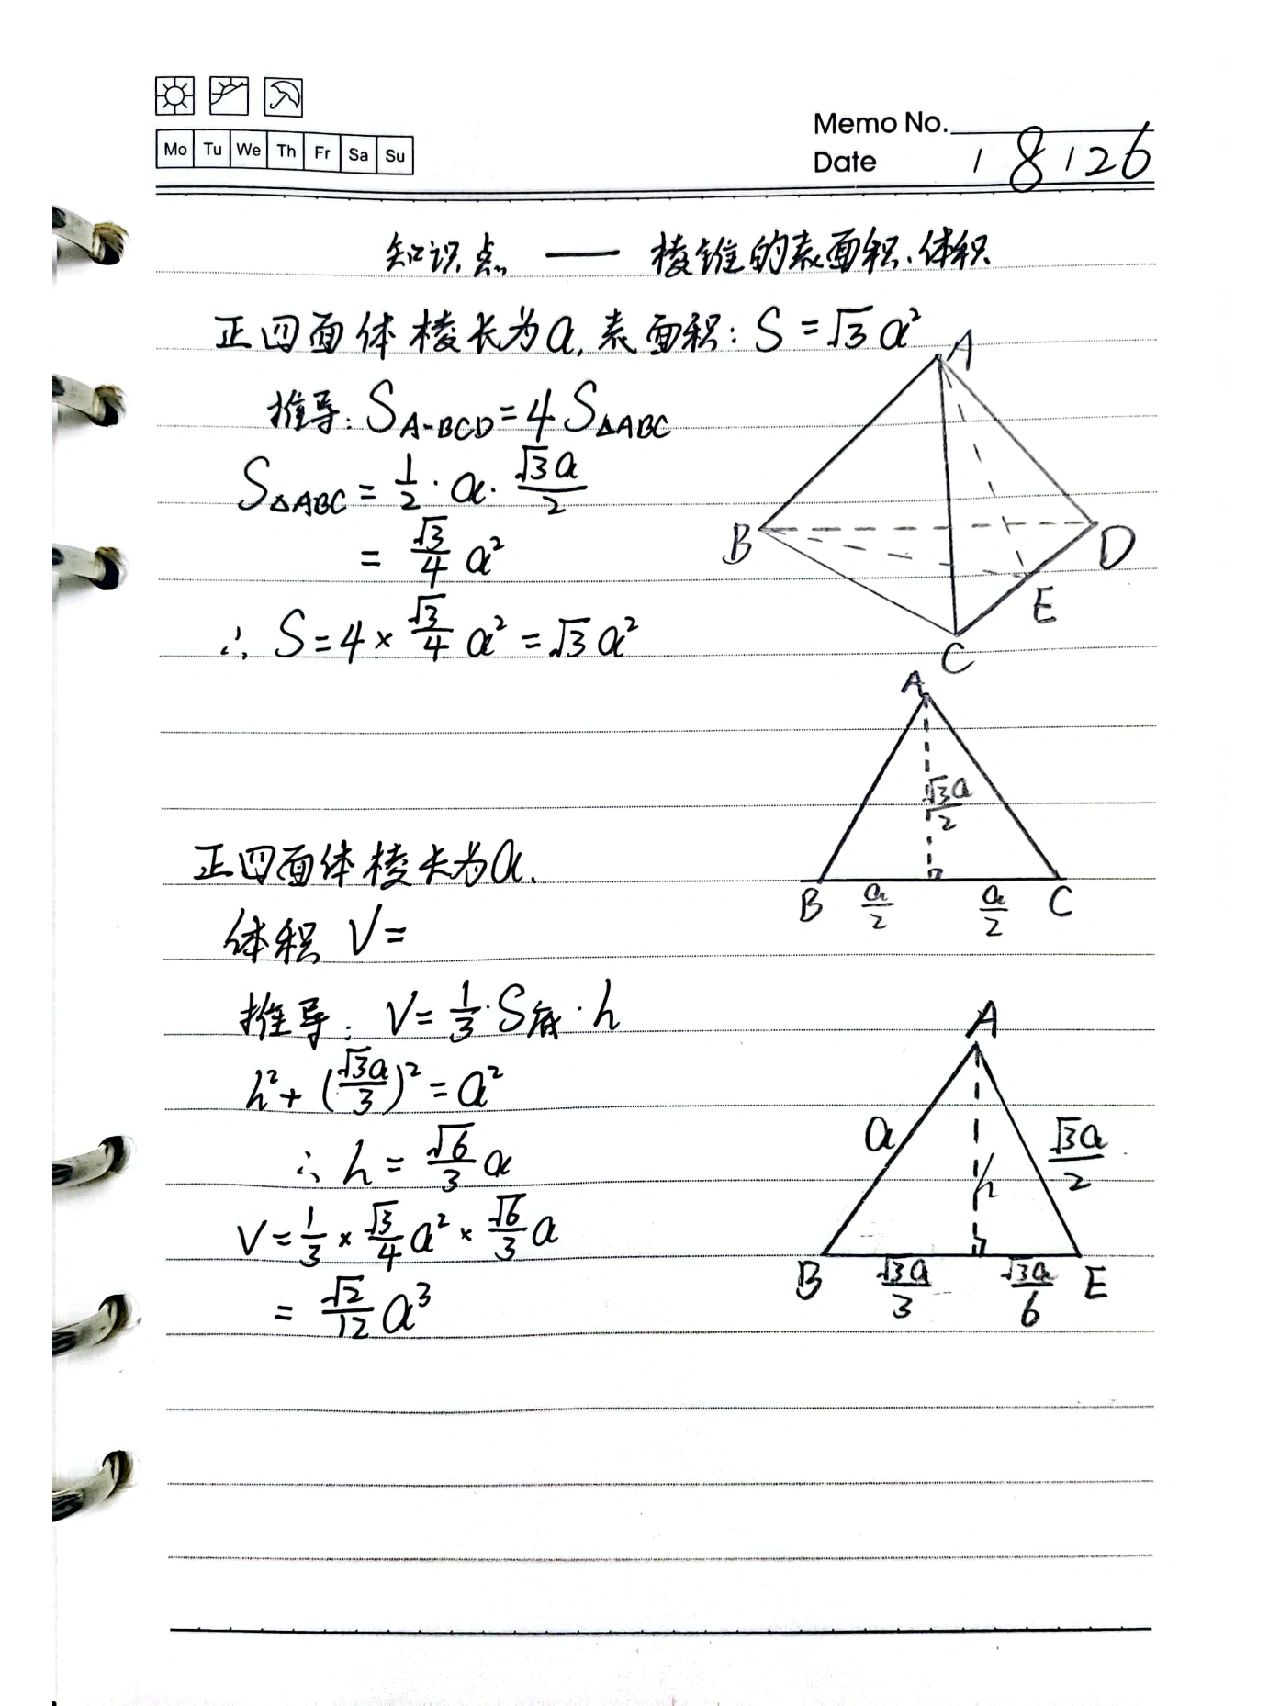 Mo Tu We Th Fr Sa Su
Memo No.
Date / 8 / 26
知识点 —— 棱锥的表面积、体积
正四面体棱长为a, 表面积: S = √3 a²
推导: S_{A-BCD} = 4 S_{△ABC}
S_{△ABC} = 1/2 · a · √3a/2
= √3/4 a²
∴ S = 4 × √3/4 a² = √3 a²
A
B
D
E
C
A
√3a/2
B a/2 a/2 C
正四面体棱长为a.
体积 V =
推导: V = 1/3 · S底 · h
h² + (√3a/3)² = a²
∴ h = √6/3 a
V = 1/3 × √3/4 a² × √6/3 a
= √2/12 a³
A
a
√3a/2
h
B √3a/3 √3a/6 E